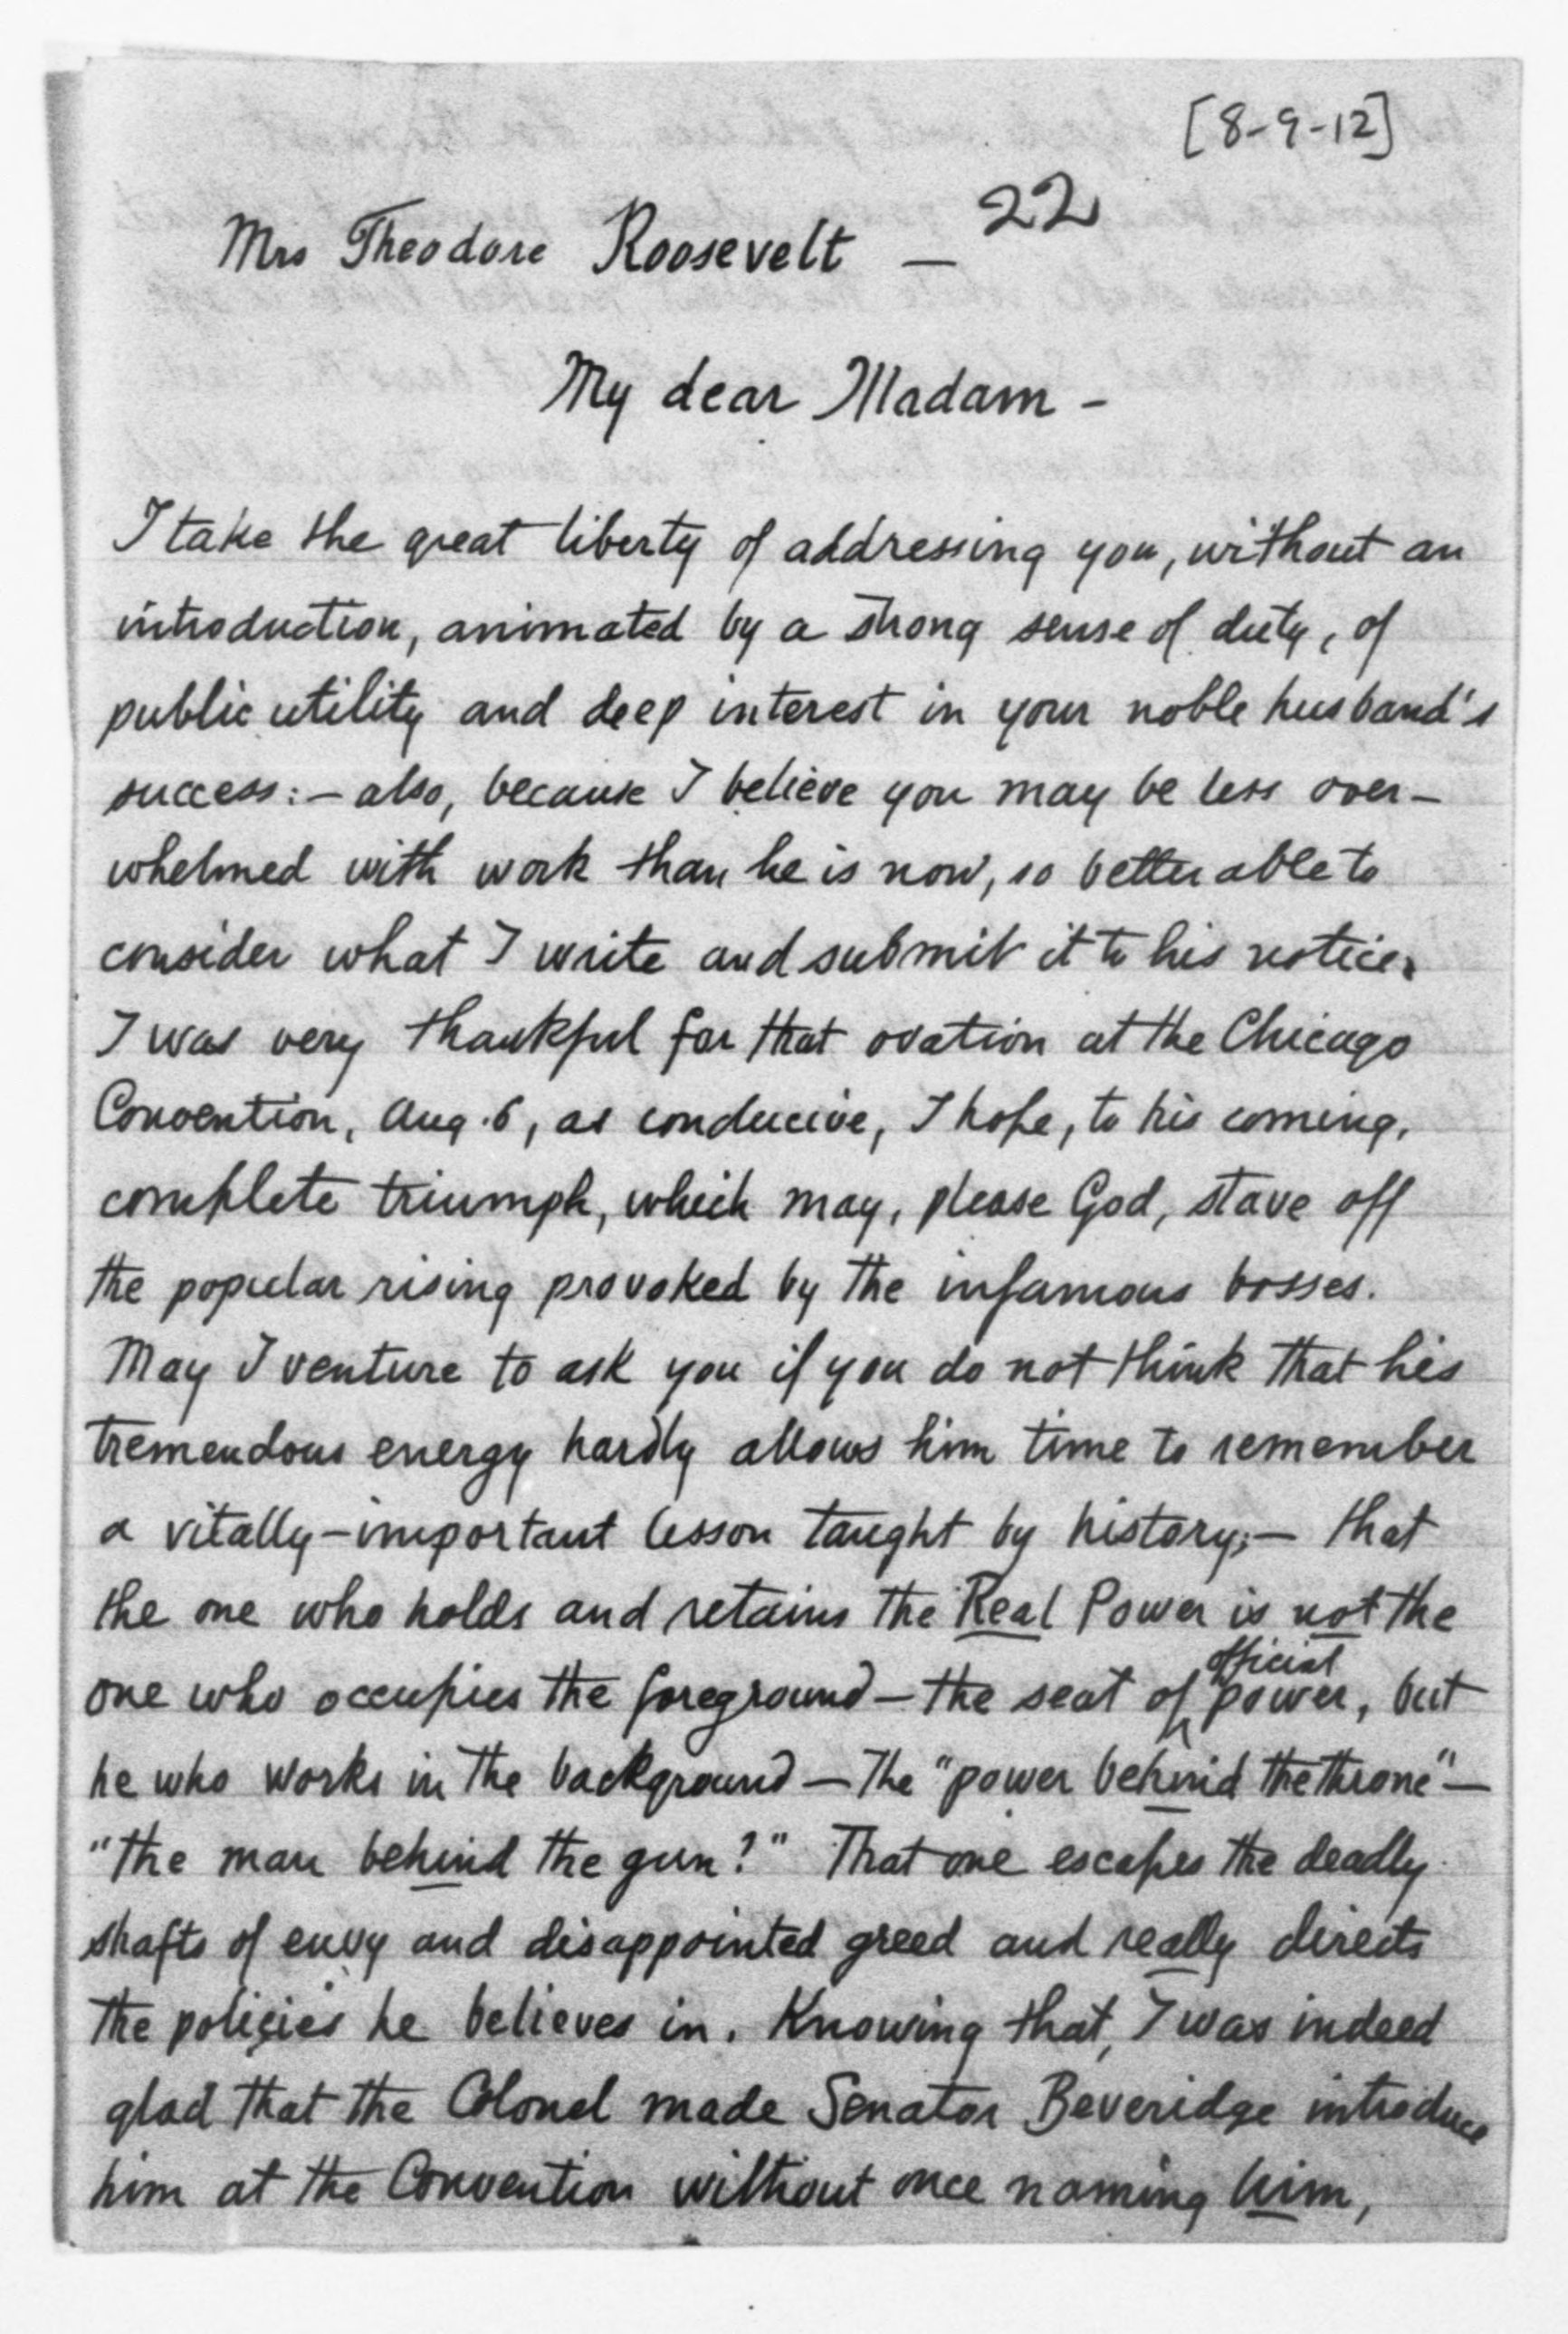 [8-9-12]
22
Mrs Theodore Roosevelt —
My dear Madam -
I take the great liberty of addressing you, without an
introduction, animated by a strong sense of duty, of
public utility and deep interest in your noble husband's
success:— also, because I believe you may be less over-
whelmed with work than he is now, so better able to
consider what I write and submit it to his notice.
I was very thankful for that ovation at the Chicago
Convention, Aug. 6, as conducive, I hope, to his coming,
complete triumph, which may, please God, stave off
the popular rising provoked by the infamous bosses.
May I venture to ask you if you do not think that his
tremendous energy hardly allows him time to remember
a vitally-important lesson taught by history;— that
the one who holds and retains the Real Power is not the
one who occupies the foreground — the seat of official power, but
he who works in the background — The "power behind the throne" —
"the man behind the gun?" That one escapes the deadly
shafts of envy and disappointed greed and really directs
the policies he believes in. Knowing that, I was indeed
glad that the Colonel made Senator Beveridge introduce
him at the Convention without once naming him,